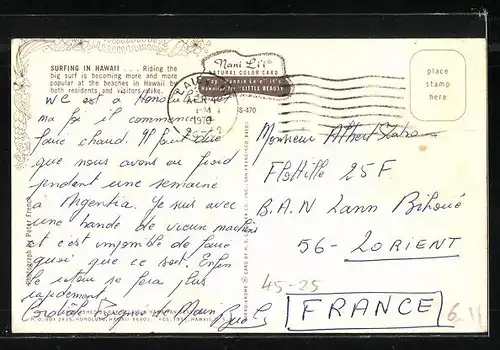 SURFING IN HAWAII . . . Riding the
big surf is becoming more and more
popular at the beaches in Hawaii
both residents and visitors alike.
Nani Li'i
NATURAL COLOR CARD
Say "Nannie Lee" it's
Hawaiian for "LITTLE BEAUTY"
PM
1970
S-470
place
stamp
here
est à Honolulu
ma foi il commence
faire chaud. Il faut dire
que nous avons eu froid
pendant une semaine
à Argentia. Je suis avec
une bande de vieux
et c'est impossible de faire
quoi que ce soit. Enfin
le retour se fera plus
rapidement.
Cordiale Poignée de Main
Monsieur Albert
Flottille 25F
B.A.N Lann Bihoué
56- LORIENT
45-25
FRANCE
Photograph by Peter French
HONOLULU, HAWAII